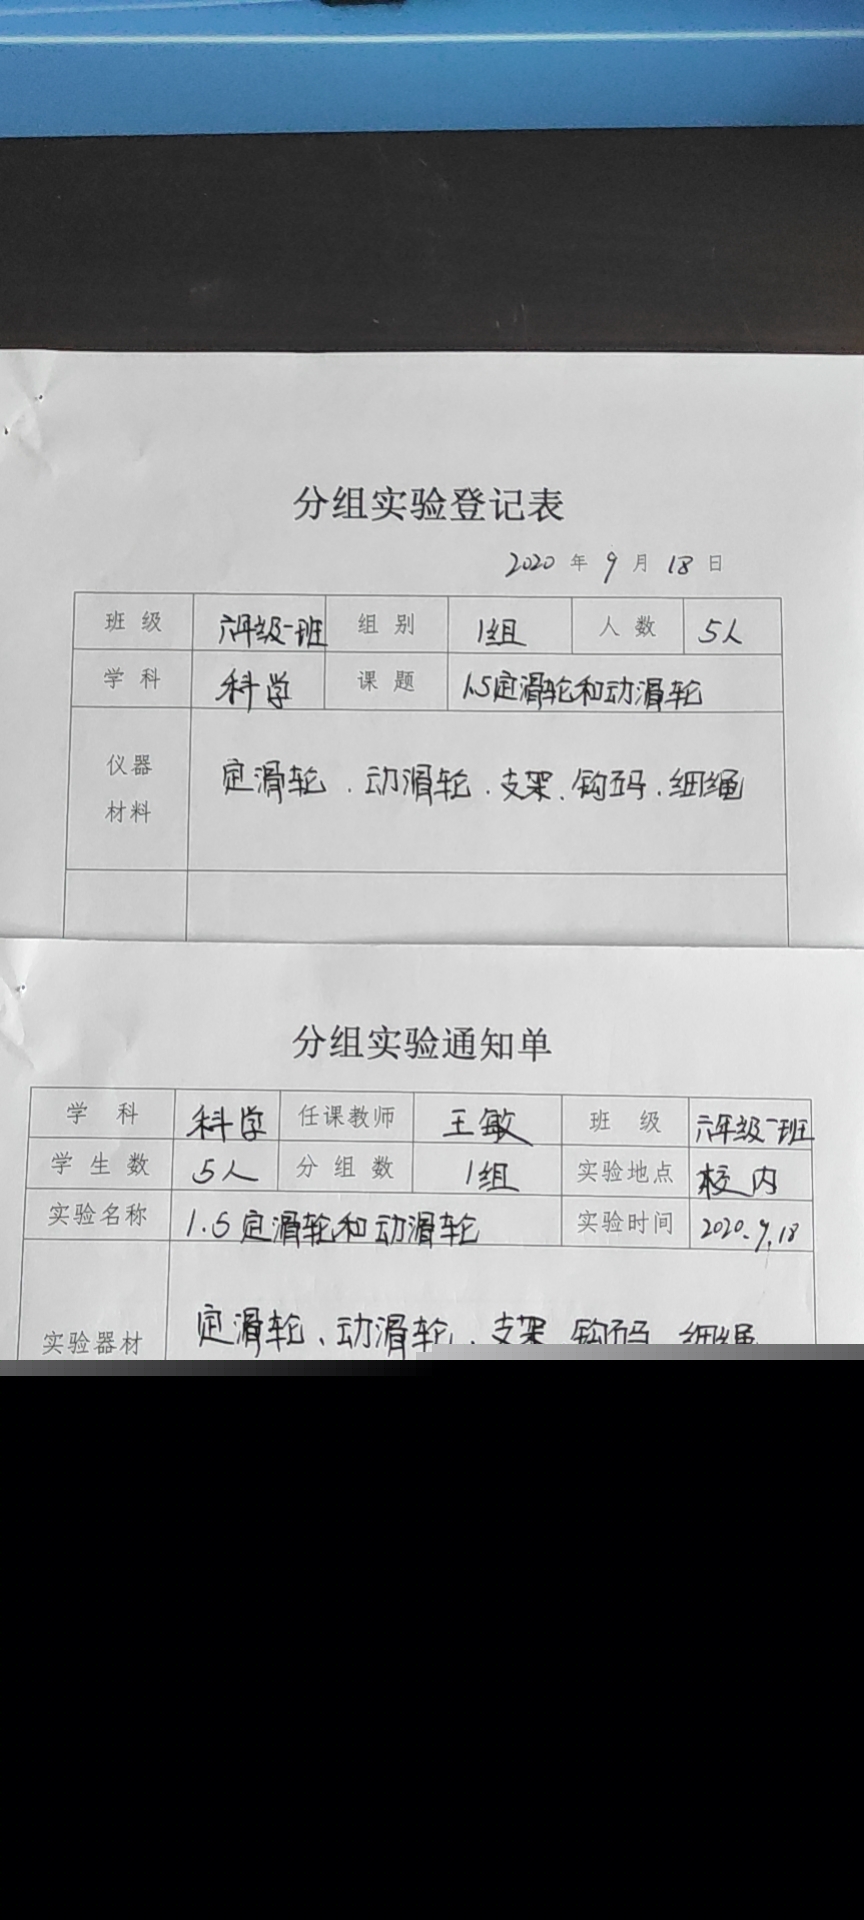 分组实验登记表
2020 年 9 月 18 日
班 级 六年级一班 组 别 1组 人 数 5人
学 科 科学 课 题 1.5定滑轮和动滑轮
仪器
材料
定滑轮、动滑轮、支架、钩码、细绳
分组实验通知单
学 科 科学 任课教师 王敏 班 级 六年级一班
学 生 数 5人 分 组 数 1组 实验地点 校内
实验名称 1.5定滑轮和动滑轮 实验时间 2020.9.18
实验器材 定滑轮、动滑轮、支架 钩码 细绳